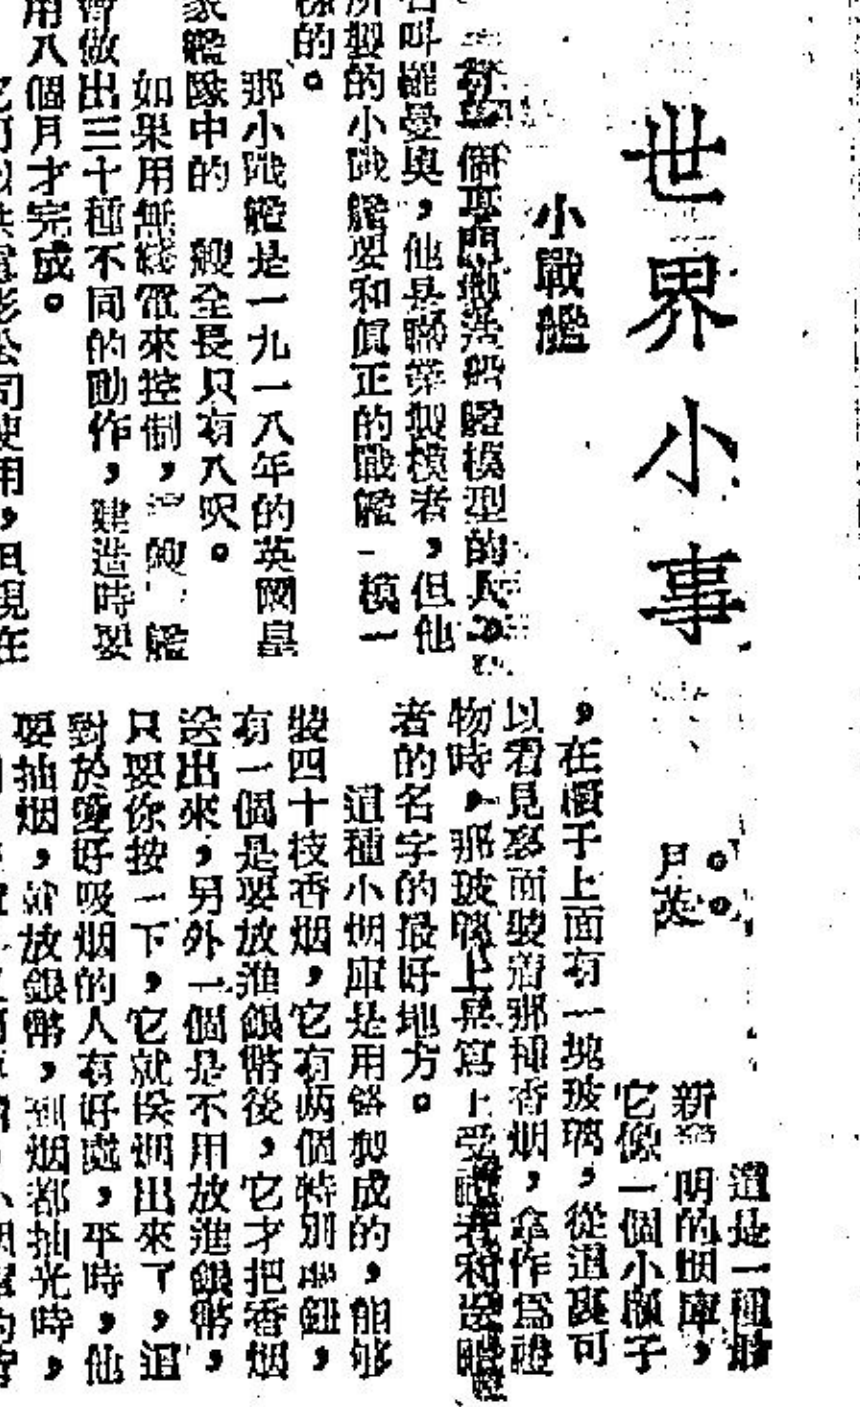 世界小事
月英
小戰艦
個專門製造船艦模型的人
名叫羅曼奥，他是職業製模者，但他
所製的小戰艦要和眞正的戰艦一模一
樣的。
那小戰艦是一九一八年的英國皇
家艦隊中的 艘全長只有八呎。
如果用無綫電來控制， 艘 艦
會做出三十種不同的動作，建造時要
用八個月才完成。
公司使用，但現在
這是一種
新 明的烟庫，
它像一個小櫃子
，在櫃子上面有一塊玻璃，從這裏可
以看見裏面裝着那種香烟，拿作爲禮
物時，那玻璃上是寫上受 者和送
者的名字的最好地方。
這種小烟庫是用 製成的，能够
裝四十枝香烟，它有兩個特別 鈕，
有一個是要放進銀幣後，它才把香烟
送出來，另外一個是不用放進銀幣，
只要你按一下，它就 烟出來了，這
對於愛好吸烟的人有好處，平時，他
要抽烟，就放銀幣，到烟都抽光時，